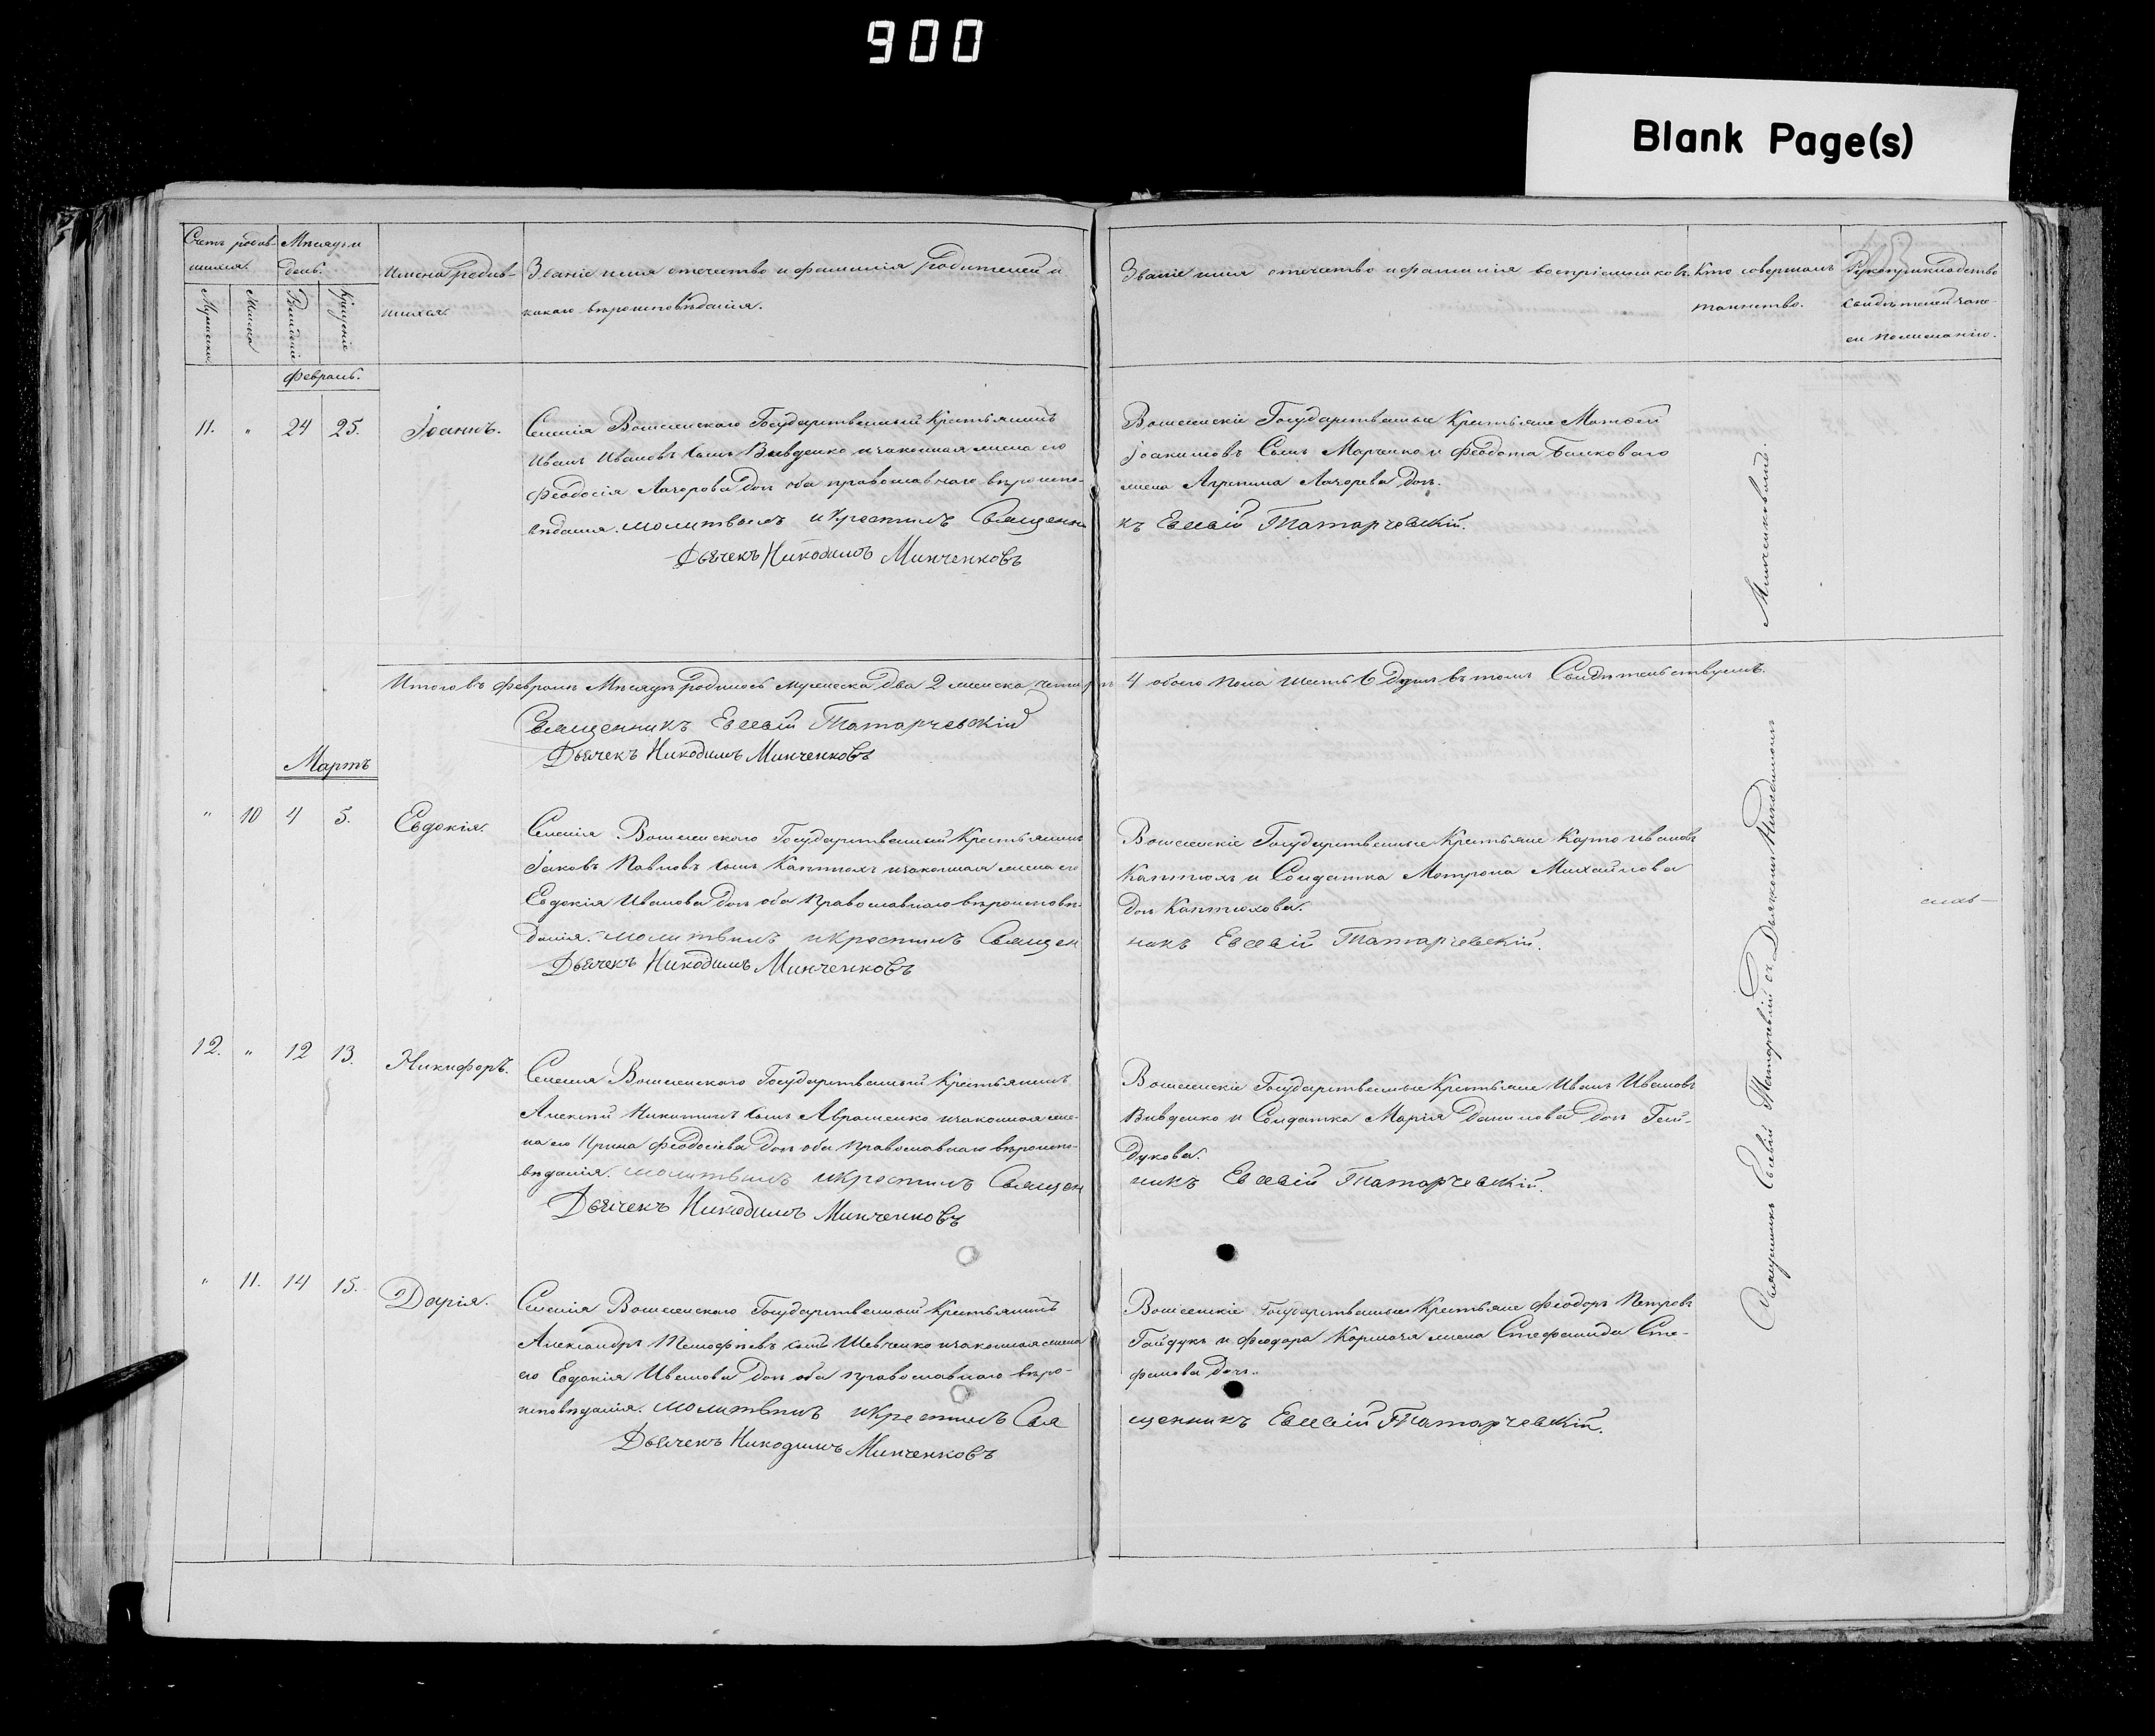 900
Blank Page(s)
Счетъ родив-
шихся.
Мѣсяцъ и
день.
Имена родив-
шихся.
Званіе имя отечество и фамилія родителей и
какого вѣроисповѣданія.
Званіе имя отечество и фамилія воспріемниковъ.
Кто совершалъ
таинство.
Рукоприкладство
свидѣтелей
по желанію.
Мужеска
Женска
Рожденіе
Крещеніе
Февраль.
11. " 24 25. Іоаннъ.
Селенія Государственный Крестьянинъ
Иванъ Ивановъ сынъ Вивденко и законная жена его
Феодосія Лазорова дочь оба православнаго вѣроиспо-
вѣданія. молитвилъ и крестилъ Священни
къ Евсевій Татарчевскій.
Дьячекъ Никодимъ Минченковъ
Государственные Крестьяне Матѳей
Іоакимовъ Сынъ Марченко и Феодота
жена Агрипина Лазорева дочь.
Итого въ Февралѣ Мѣсяцѣ родилось мужеска два 2 женска четыре 4 обоего пола шесть 6 душъ въ томъ Свидѣтельствуемъ.
Священникъ Евсевій Татарчевскій
Дьячекъ Никодимъ Минченковъ
Мартъ
" 10 4 5. Евдокія.
Селенія Государственный Крестьянинъ
Іаковъ Павловъ сынъ Каптюхъ и законная жена его
Евдокія Иванова дочь оба православнаго вѣроисповѣ-
данія. молитвилъ и крестилъ Священ
никъ Евсевій Татарчевскій.
Дьячекъ Никодимъ Минченковъ
Государственные Крестьяне Карпо Ивановъ
Каптюхъ и Солдатка Мотрона Михайлова
дочь Каптюхова.
12. " 12 13. Никифоръ.
Селенія Государственный Крестьянинъ
Алексѣй Никитинъ сынъ Авраменко и законная же-
на его Ирина Феодосіева дочь оба православнаго вѣроиспо-
вѣданія. молитвилъ и крестилъ Священ
никъ Евсевій Татарчевскій.
Дьячекъ Никодимъ Минченковъ
Государственные Крестьяне Иванъ Ивановъ
Вивденко и Солдатка Марія Данилова дочь Гай-
дукова.
" 11. 14 15. Дарія.
Селенія Государственный Крестьянинъ
Александръ Тимофѣевъ сынъ Шевченко и законная жена
его Евдокія Иванова дочь оба православнаго вѣро-
исповѣданія. молитвилъ и крестилъ Свя
щенникъ Евсевій Татарчевскій.
Дьячекъ Никодимъ Минченковъ
Государственные Крестьяне Феодоръ Петровъ
Гайдукъ и Феодора Кормача жена Стефанида Сте-
фанова дочь.
Священникъ Евсевій Татарчевскій съ Дьячкомъ Никодимомъ Минченковымъ.